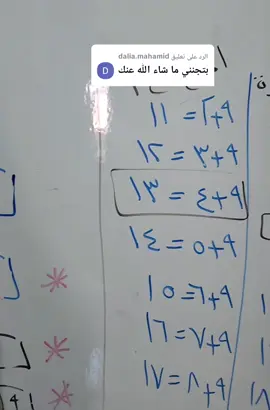 الرد على تعليق dalia.mahamid
بتجنني ما شاء الله عنك
D
٩+٢= ١١
٩+٣= ١٢
٩+٤= ١٣
٩+٥= ١٤
٩+٦= ١٥
٩+٧= ١٦
٩+٨= ١٧